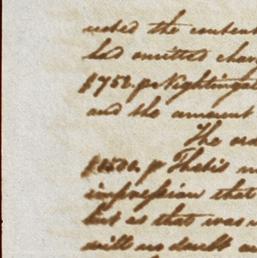 noted the content
had omitted char
$750. pr Nightingal
and the amount
The or
$1500. pr Thetis
impression that
but as that was
will no doubt